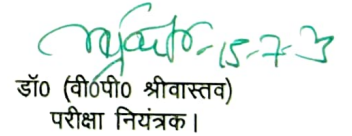 15-7-23
डॉ0 (वी0पी0 श्रीवास्तव)
परीक्षा नियंत्रक।